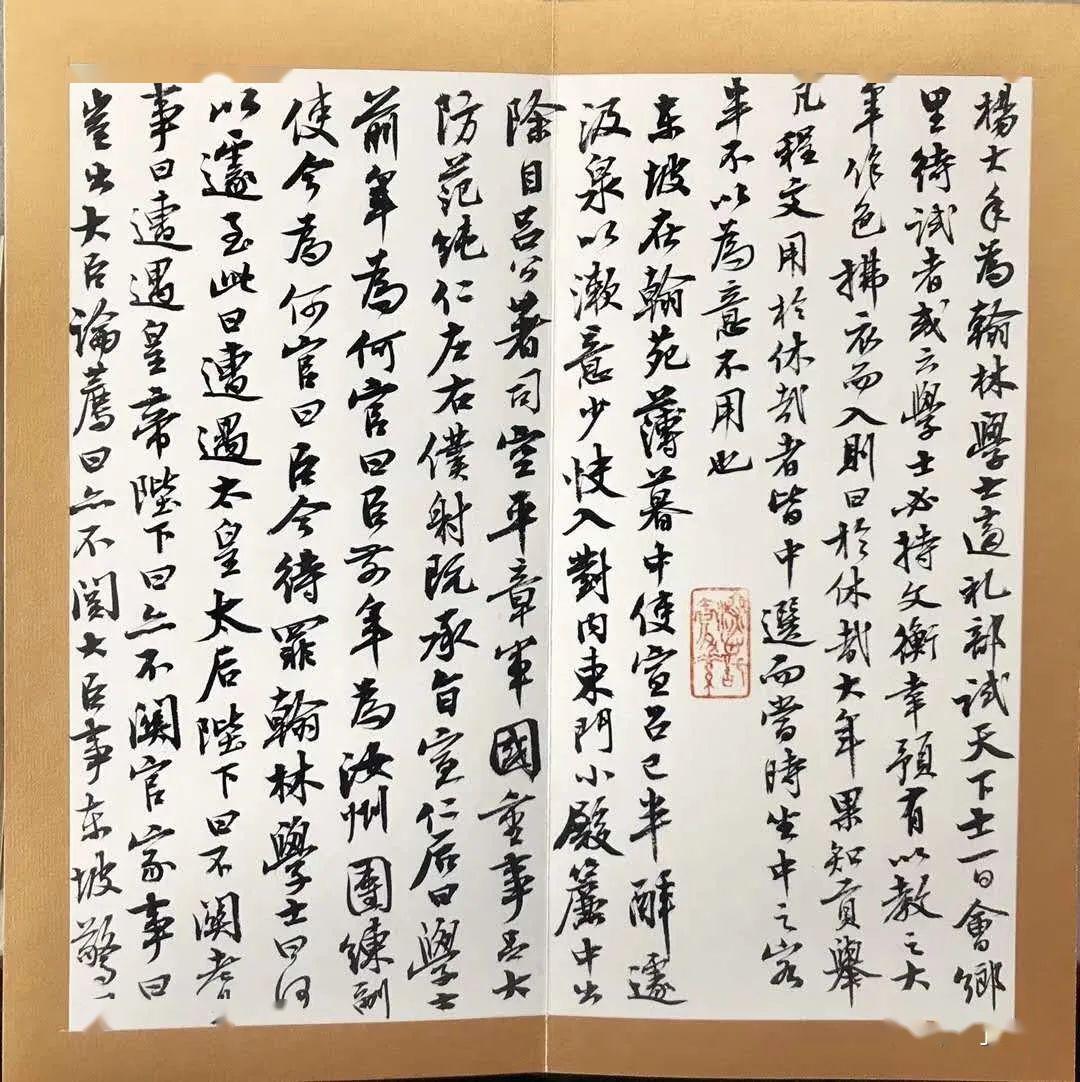 楊大年為翰林學士適礼部試天下士一日會鄉
里待試者或云學士必持文衡幸預有以教之大
年作色拂衣而入則曰於休哉大年果知貢舉
凡程文用於休哉者皆中選而當時坐中之客
半不以為意不用也
東坡在翰苑薄暮中使宣召已半醉遽
汲泉以漱意少快入對內東門小殿簾中出
除目呂公著司空平章軍國重事呂大
防范純仁左右僕射既承旨宣仁后曰學士
前年為何官曰臣前年為汝州團練副
使今為何官曰臣今待罪翰林學士曰何
以遽至此曰遭遇太皇太后陛下曰不關老
事曰遭遇皇帝陛下曰亦不關官家事曰
豈出大臣論薦曰亦不關大臣事東坡驚